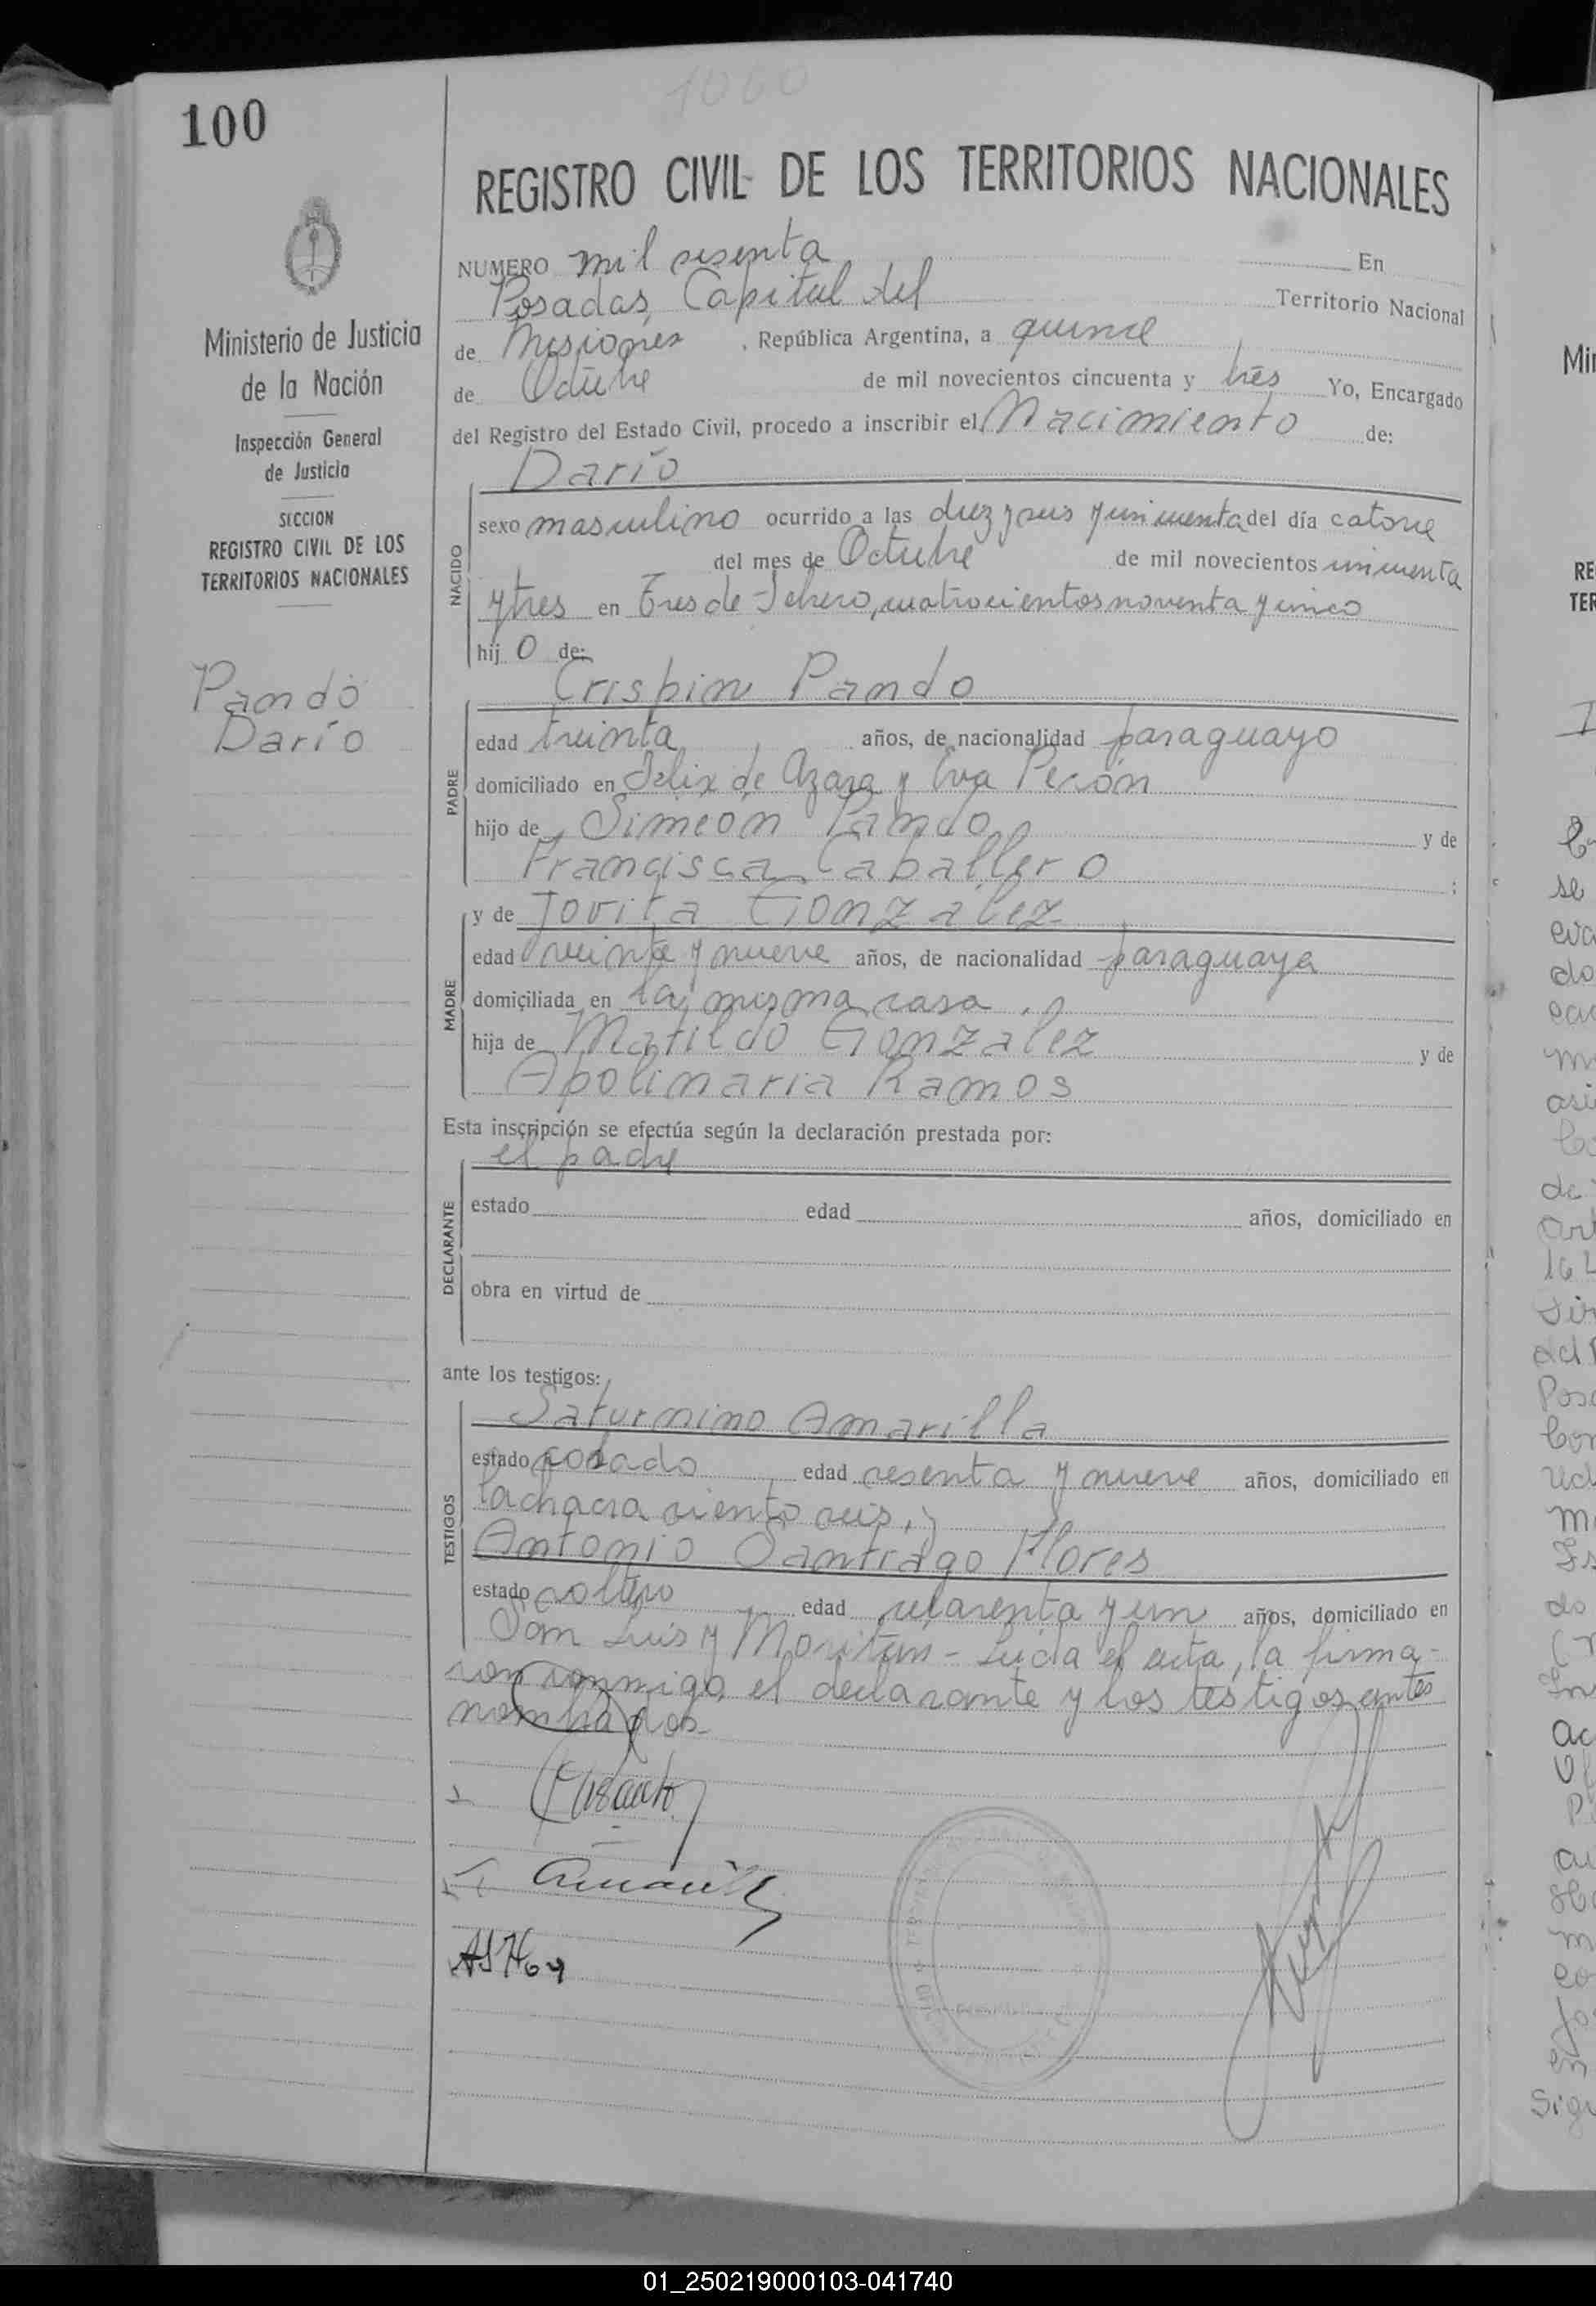 1060
100
REGISTRO CIVIL DE LOS TERRITORIOS NACIONALES
NUMERO mil sesenta En
Posadas, Capital del Territorio Nacional
de Misiones, República Argentina, a quince
de Octubre de mil novecientos cincuenta y tres Yo, Encargado
del Registro del Estado Civil, procedo a inscribir el Nacimiento de:
Ministerio de Justicia
de la Nación
Inspección General
de Justicia
SECCION
REGISTRO CIVIL DE LOS
TERRITORIOS NACIONALES
Pando
Darío
NACIDO
Darío
sexo masculino ocurrido a las diez y seis y cincuenta del día catorce
del mes de Octubre de mil novecientos cincuenta
y tres en Tres de Febrero, cuatrocientos noventa y cinco
hij o de:
PADRE
Crispin Pando
edad treinta años, de nacionalidad paraguayo
domiciliado en Felix de Azara y Eva Perón
hijo de Simeón Pando y de
Francisca Caballero ;
MADRE
y de Jovita Gonzalez
edad veinte y nueve años, de nacionalidad paraguaya
domiciliada en la misma casa,
hija de Matildo Gonzalez y de
Apolinaria Ramos
Esta inscripción se efectúa según la declaración prestada por:
DECLARANTE
el padre
estado edad años, domiciliado en
obra en virtud de
ante los testigos:
TESTIGOS
Saturnino Amarilla
estado edad sesenta y nueve años, domiciliado en
la chacra ciento seis, y
Antonio Santiago Flores
estado soltero edad cuarenta y un años, domiciliado en
San Luis y Moritán - Leída el acta, la firma-
ron conmigo, el declarante y los testigos antes
nombrados-
Amarilla
01_250219000103-041740